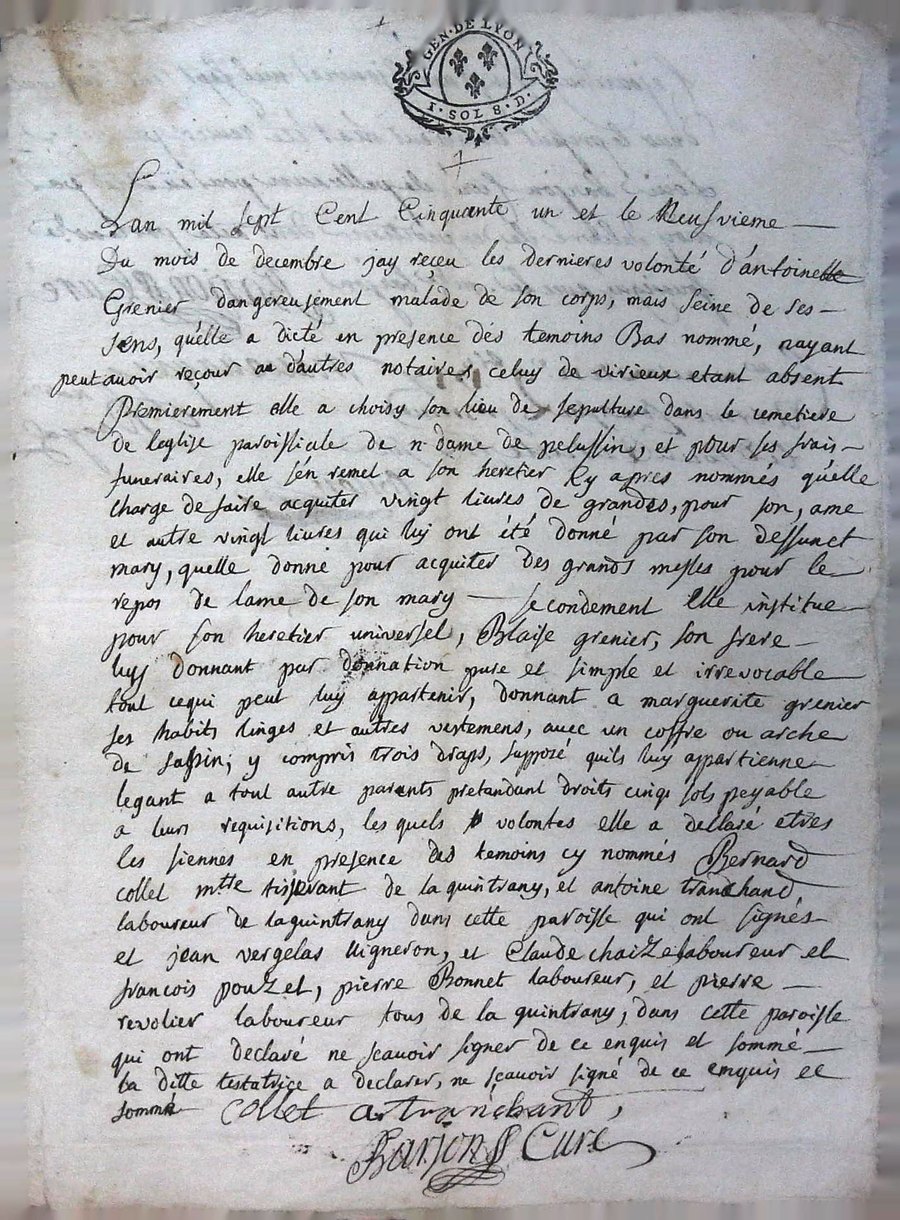 GEN·DE LYON
1·SOL 8·D·
Lan mil sept Cent Cinquante un et le Neufvieme
Du mois de decembre jay reçeu les dernieres volonté d'antoinette
Grenier dangereusement malade de son corps, mais seine de ses
sens, qu'elle a dicté en presence des temoins Bas nommé, nayant
peut avoir reçour au d'autres notaires celuy de virieux etant absent
Premierement elle a choisy son lieu de sepulture dans le cemetiere
de leglise paroissicale de n dame de pelussin, et pour ses frais
funeraires, elle s'en remet a son heretier Cy apres nommés qu'elle
charge de faire acquiter vingt livres de grandes, pour son, ame
et autre vingt livres qui luy ont été donné par son deffunct
mary, quelle donne pour acquiter des grands messes pour le
repos de lame de son mary — secondement Elle institue
pour son heretier universel, Blaise grenier, son frere
luy donnant par donnation pure et simple et irrevocable
tout cequi peut luy appartenir, donnant a marguerite grenier
ses habits linges et autres vestemens, avec un coffre ou arche
de sapin; y compris trois draps, supposé quils luy appartienne
legant a tout autre parents pretandant droits cinqs sols peyable
a leurs requisitions, les quels volontes elle a declaré etres
les siennes en presence des temoins cy nommés Bernard
collet mtre tisserant de la quintrany, et antoine tranchand
laboureur de laquintrany dans cette paroisse qui ont signés
et jean vergelas Vigneron, et Claude chaize laboureur et
francois pouzet, pierre Bonnet laboureur, et pierre
revolier laboureur tous de la quintrany, dans cette paroisse
qui ont declaré ne scavoir signer de ce enquis et sommé
La ditte testatrice a declarer, ne sçavoir signé de ce emquis et
sommé collet a tranchant,
Barjon Curé